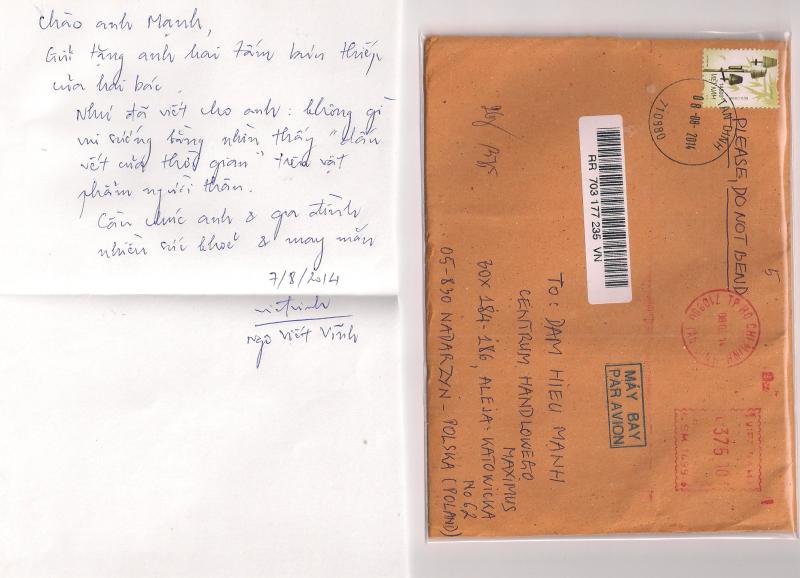 Chào anh Mạnh,
Gửi tặng anh hai tấm bưu thiếp
của hai bác.
Như đã viết cho anh: không gì
vui sướng bằng nhìn thấy "dấu
vết của thời gian" trên vật
phẩm người thân.
Cầu chúc anh & gia đình
nhiều sức khoẻ & may mắn
7/8/2014
Ngô Viết Vĩnh
VIETNAM
TAN DINH
08-08-2014
710980
PLEASE, DO NOT BEND
5
RR 703 177 235 VN
TO: DAM HIEU MANH
CENTRUM HANDLOWEGO
MAXIMUS
BOX 184-186, ALEJA: KATOWICKA
No 62
05-830 NADARZYN - POLSKA (POLAND)
MÁY BAY
PAR AVION
TP HO CHI MINH